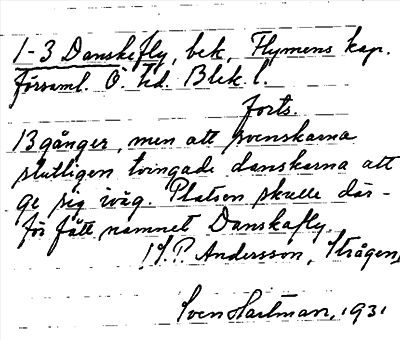 1-3 Danskefly, bek, Flymens kap.
församl. Ö. hd. Blek. l.
forts.
13 gånger, men att svenskarna
slutligen tvingade danskarna att
ge sig iväg. Platsen skulle där-
för fått namnet Danskafly.
P. Andersson, Strågen,
Sven Hartman, 1931